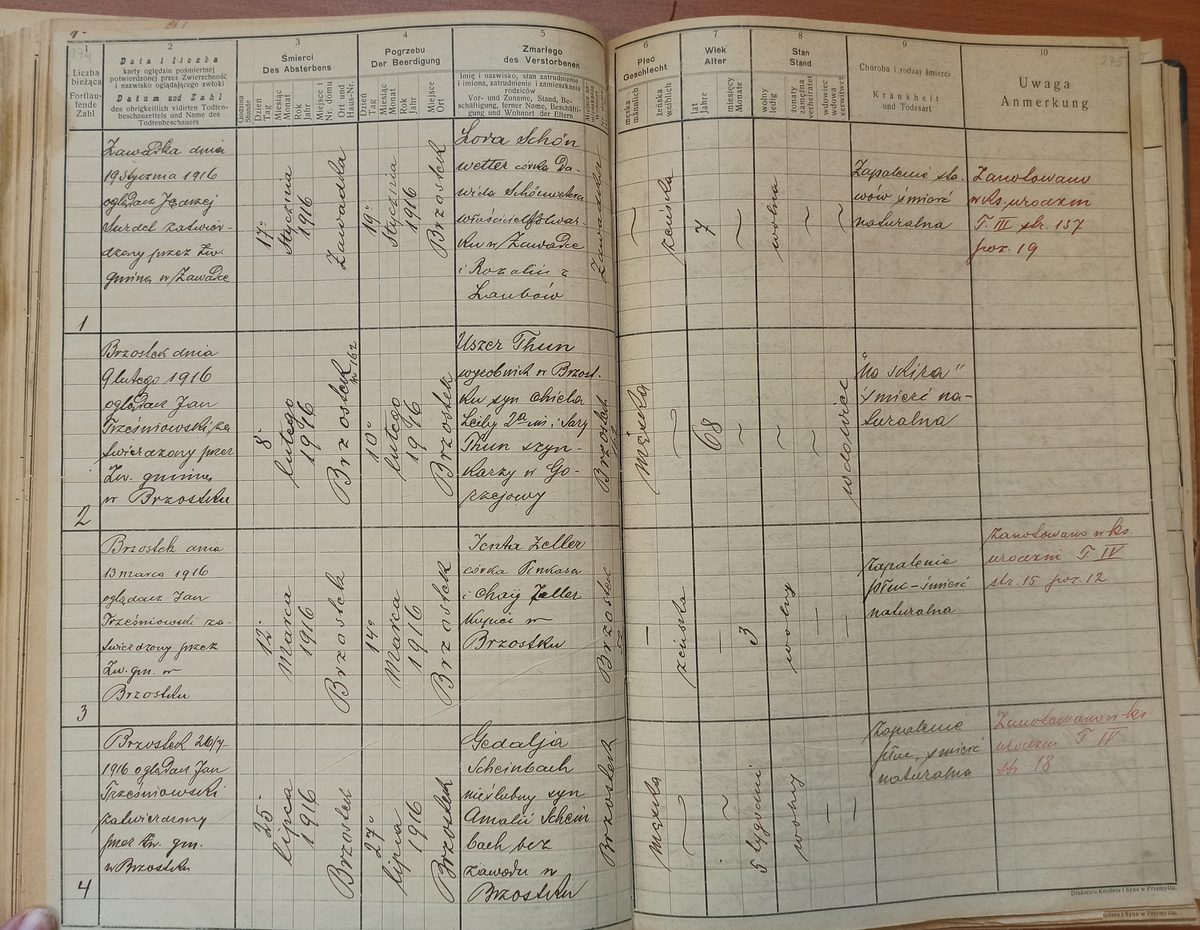 274
275
1
2
3
4
5
6
7
8
9
10
Liczba
bieżąca
Fortlau-
fende
Zahl
Data i liczba
karty oględzin pośmiertnej
potwierdzonej przez Zwierzchność
i nazwisko oglądającego zwłoki
Datum und Zahl
des obrigkeitlich vidirten Todten-
beschauzettels und Name des
Todtenbeschauers
Śmierci
Des Absterbens
Godzina
Stunde
Dzień
Tag
Miesiąc
Monat
Rok
Jahr
Miejsce
Nr. domu
Ort und
Haus-Nr.
Pogrzebu
Der Beerdigung
Dzień
Tag
Miesiąc
Monat
Rok
Jahr
Miejsce
Ort
Zmarłego
des Verstorbenen
Imię i nazwisko, stan zatrudnienie
i imiona, zatrudnienie i zamieszkanie
rodziców
Vor- und Zuname, Stand, Be-
schäftigung, ferner Name, Beschäfti-
gung und Wohnort der Eltern
Płeć
Geschlecht
męska
männlich
żeńska
weiblich
Wiek
Alter
lat
Jahre
miesięcy
Monate
Stan
Stand
wolny
ledig
żonaty
zamężna
verheiratet
wdowiec
wdowa
verwitwet
Choroba i rodzaj śmierci
Krankheit
und Todesart
Uwaga
Anmerkung
1
Zawadka dnia
19 stycznia 1916
oglądacz Jędrzej
Surdel zatwier-
dzony przez Zw.
gminną w Zawadce
17°
Stycznia
1916
Zawadka
19°
Stycznia
1916
Brzostek
Lora Schön
wetter córka Da-
wida Schönwettera
właściciel folwar-
ku w Zawadce
i Rozalii z
Laubów
Zawadka
żeńska
7
wolna
Zapalenie sta-
wów śmierć
naturalna
Zanotowano
w ks. urodzin
T. III str. 157
poz. 19
2
Brzostek dnia
9 lutego 1916
oglądacz Jan
Trześniowski za
twierdzony przez
Zw. gminną
w Brzostku
8°
lutego
1916
Brzostek
N 162
10°
lutego
1916
Brzostek
Uszer Thun
wyrobnik w Brzost.
ku syn Chiela
Leiby 2a im i Sary
Thun szyn-
karzy w Go-
rzejowy
Brzostek
162
męska
68
wdowiec
"Na skira"
śmierć na-
turalna
3
Brzostek dnia
13 marca 1916
oglądacz Jan
Trześniowski za-
twierdzony przez
Zw. gm. w
Brzostku
12°
Marca
1916
Brzostek
14°
Marca
1916
Brzostek
Jenta Zeller
córka Pinkasa
i Chaiy Zeller
kupiec w
Brzostku
Brzostek
żeńska
3
wolny
Zapalenie
płuc - śmierć
naturalna
Zanotowano w ks
urodzin T. IV
str. 15 poz. 12
4
Brzostek 26/7
1916 oglądacz Jan
Trześniowski
zatwierdzony
przez Zw. gm.
w Brzostku
25°
lipca
1916
Brzostek
27°
lipca
1916
Brzostek
Gedalja
Scheinbach
nieślubny syn
Amalii Schein
bach bez
zawodu w
Brzostku
Brzostek
męska
5 tygodni
wolny
Zapalenie
płuc, śmierć
naturalna
Zanotowano w ks.
urodzin T IV
str 18
Drukarnia Knollera i Syna w Przemyślu.
ollera i Syna w Przemyślu.